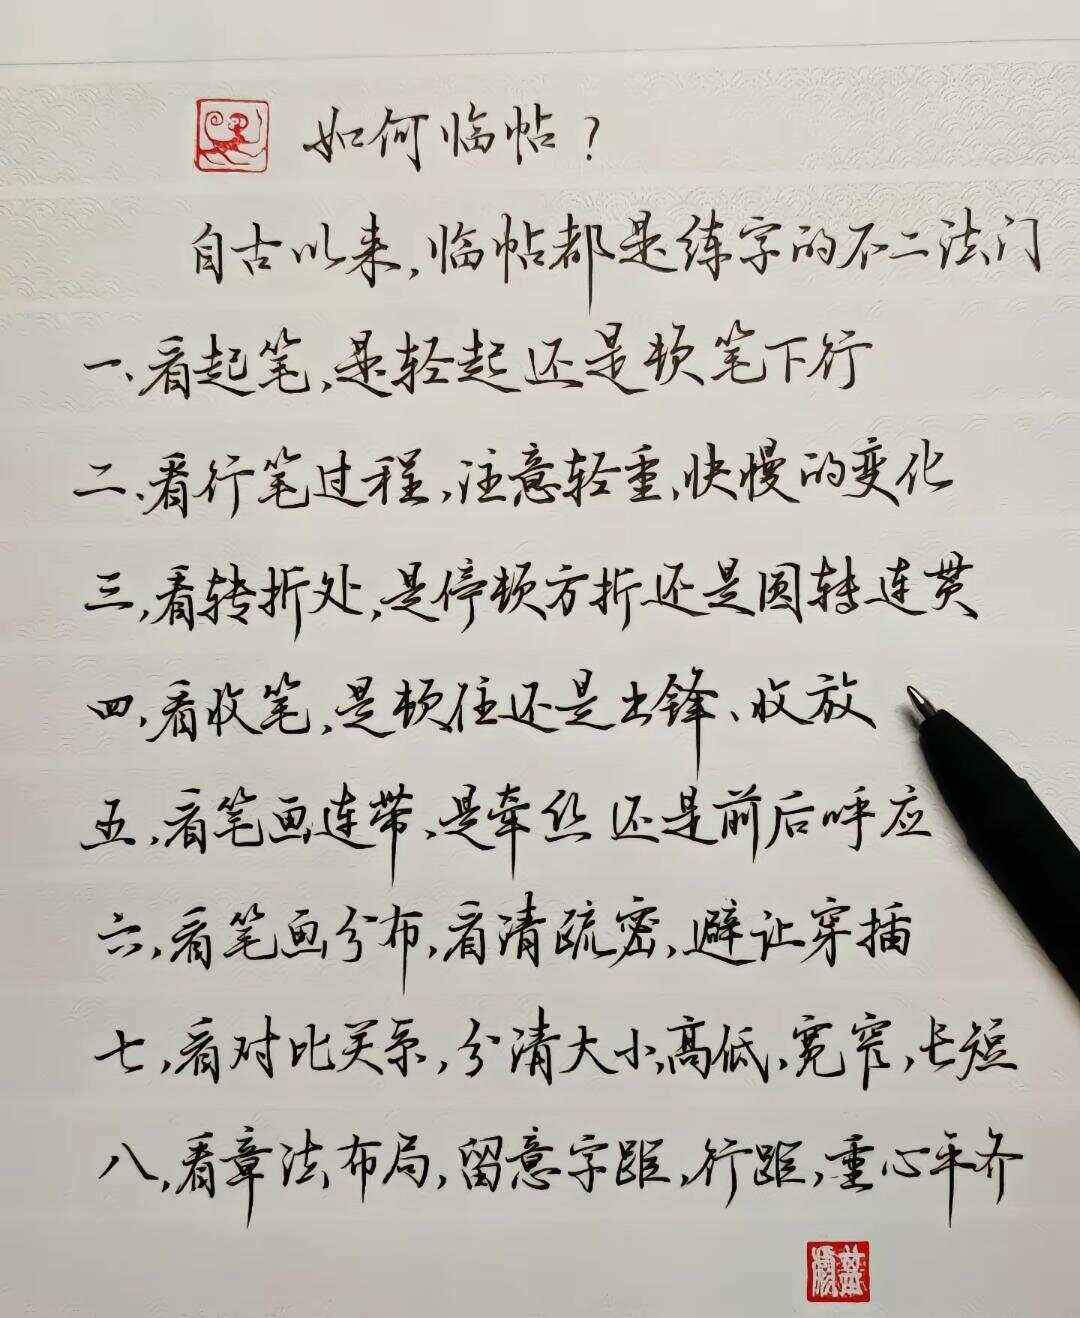 如何临帖？
自古以来,临帖都是练字的不二法门
一、看起笔,是轻起还是顿笔下行
二、看行笔过程,注意轻重、快慢的变化
三,看转折处,是停顿方折还是圆转连贯
四,看收笔,是顿住还是出锋、收放
五,看笔画连带,是牵丝还是前后呼应
六,看笔画分布,看清疏密,避让穿插
七,看对比关系,分清大小,高低,宽窄,长短
八,看章法布局,留意字距,行距,重心平齐